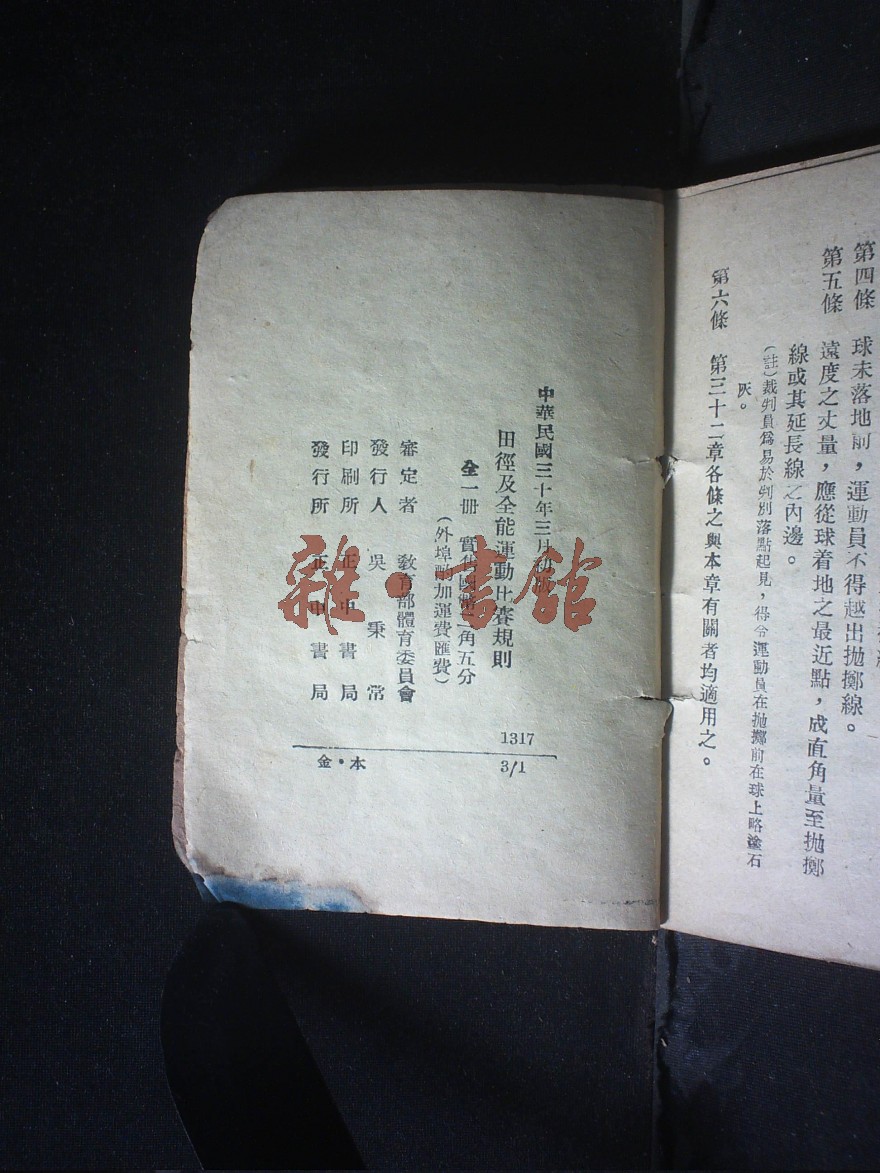 第四條　球未落地前，運動員不得越出拋擲線。
第五條　遠度之丈量，應從球着地之最近點，成直角量至拋擲
線或其延長線之內邊。
（註）裁判員爲易於判別落點起見，得令運動員在拋擲前在球上略塗石
灰。
第六條　第三十二章各條之與本章有關者均適用之。
中華民國三十年三月初版
田徑及全能運動比賽規則
全一冊　實價國幣二角五分
（外埠酌加運費匯費）
審定者　教育部體育委員會
發行人　吳秉常
印刷所　正中書局
發行所　正中書局
1317
3/1
金·本
雜·書館